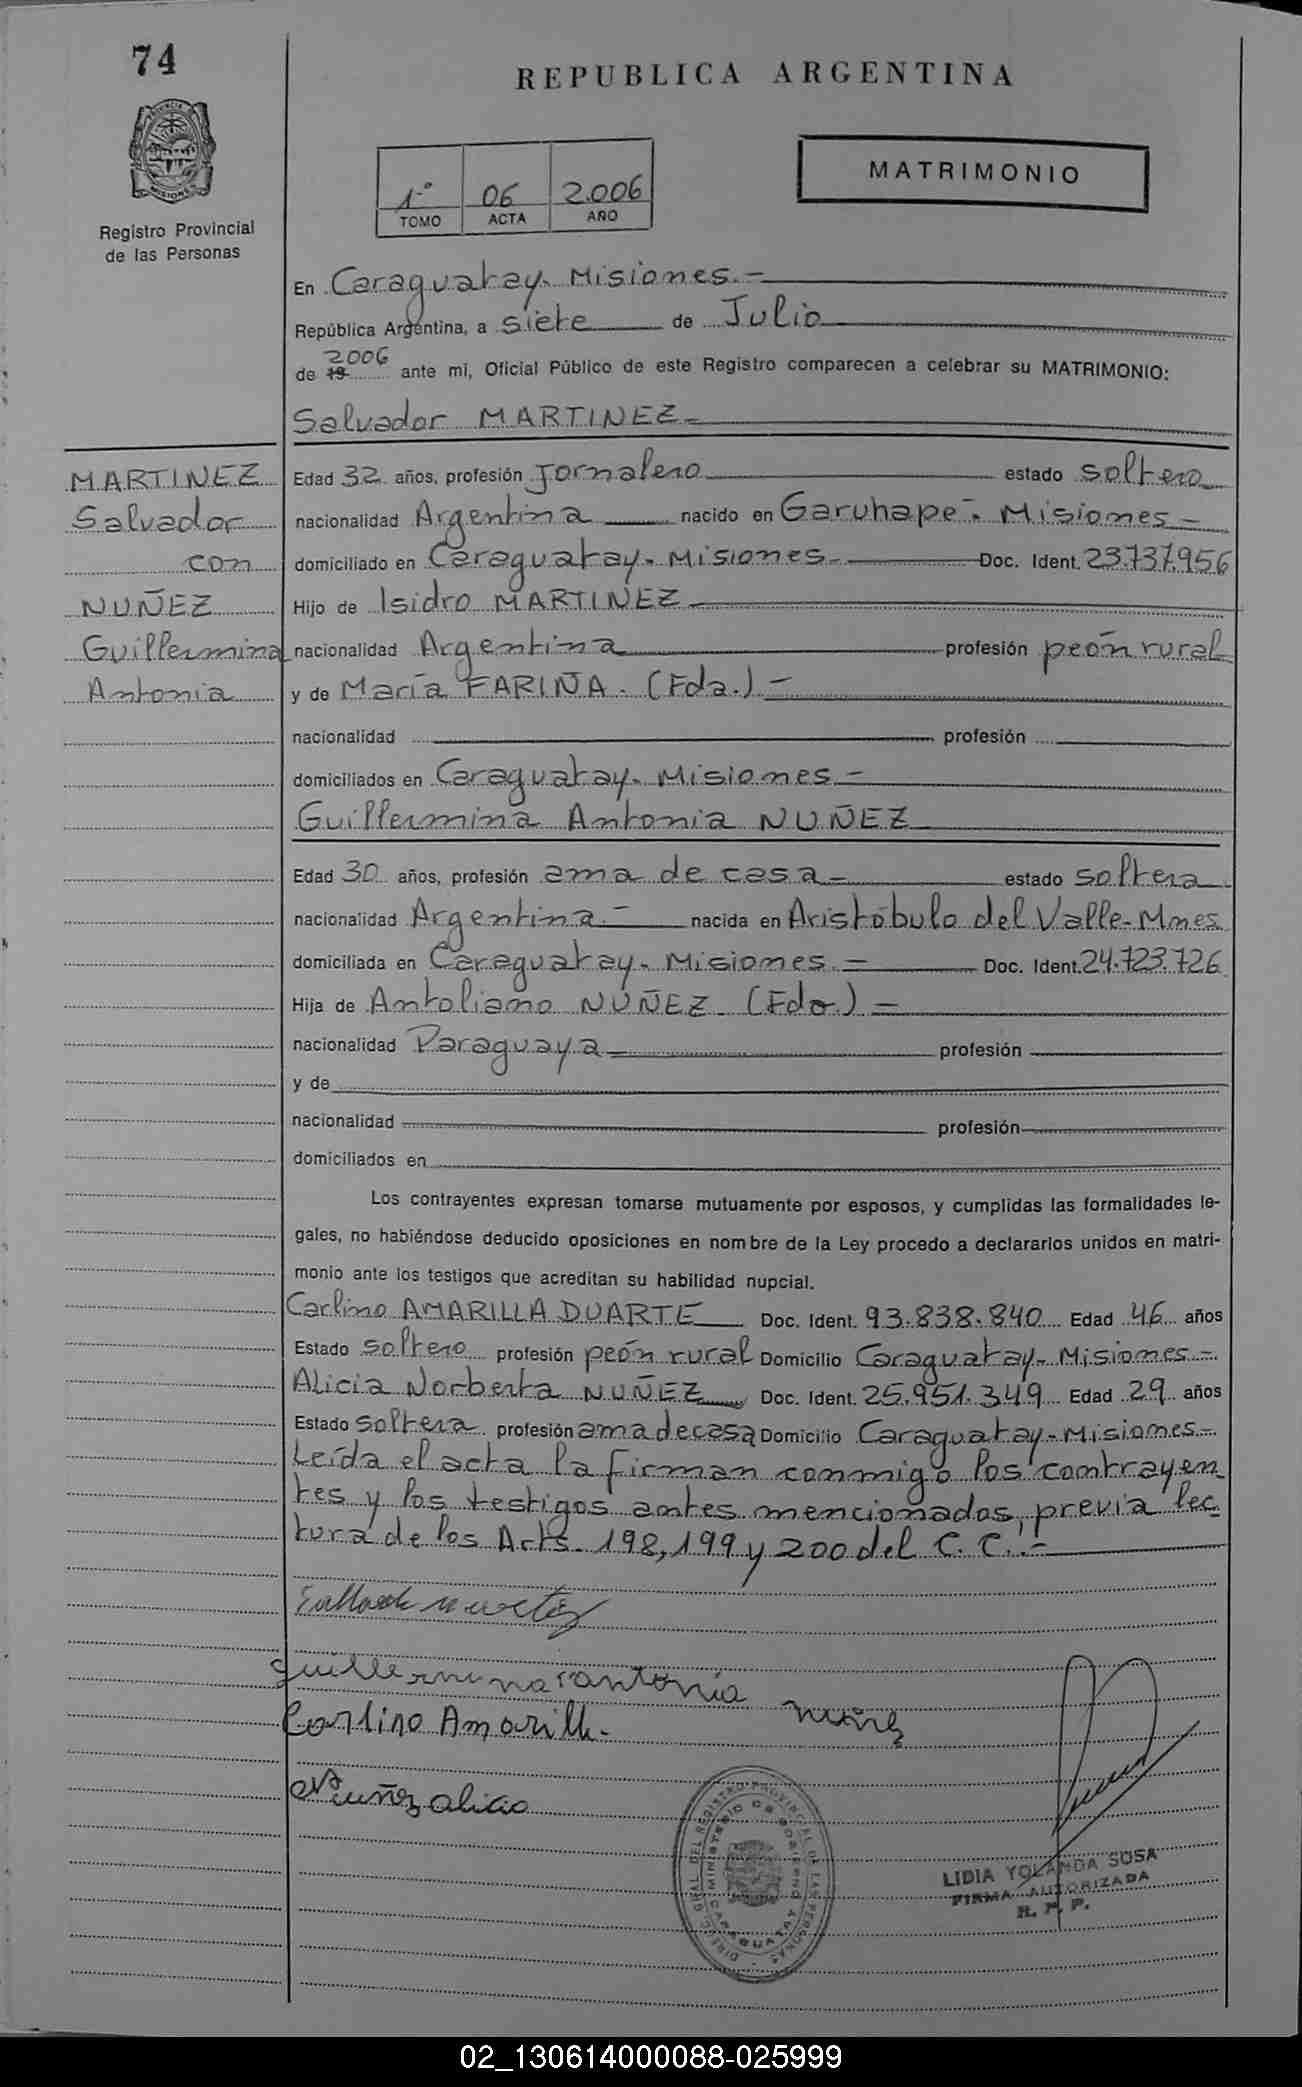 74
REPUBLICA ARGENTINA
1º 06 2.006
TOMO ACTA AÑO
MATRIMONIO
Registro Provincial
de las Personas
En Caraguatay. Misiones.-
República Argentina, a siete de Julio
de 19 2006 ante mi, Oficial Público de este Registro comparecen a celebrar su MATRIMONIO:
Salvador MARTINEZ.-
MARTINEZ
Salvador
con
NUÑEZ
Guillermina
Antonia
Edad 32 años, profesión Jornalero estado soltero
nacionalidad Argentina nacido en Garuhapé - Misiones -
domiciliado en Caraguatay. Misiones.- Doc. Ident. 23.737.956
Hijo de Isidro MARTINEZ
nacionalidad Argentina profesión peón rural
y de María FARIÑA. (Fda.) -
nacionalidad profesión
domiciliados en Caraguatay. Misiones.-
Guillermina Antonia NUÑEZ
Edad 30 años, profesión ama de casa - estado soltera
nacionalidad Argentina.- nacida en Aristóbulo del Valle-Mnes
domiciliada en Caraguatay. Misiones.- Doc. Ident. 24.723.726
Hija de Antoliano NUÑEZ. (Fdo.) -
nacionalidad Paraguaya profesión
y de
nacionalidad profesión
domiciliados en
Los contrayentes expresan tomarse mutuamente por esposos, y cumplidas las formalidades le-
gales, no habiéndose deducido oposiciones en nombre de la Ley procedo a declararlos unidos en matri-
monio ante los testigos que acreditan su habilidad nupcial.
Carlino AMARILLA DUARTE Doc. Ident. 93.838.840 Edad 46 años
Estado soltero profesión peón rural Domicilio Caraguatay-Misiones-
Alicia Norberta NUÑEZ Doc. Ident. 25.951.349 Edad 29 años
Estado soltera profesión ama de casa Domicilio Caraguatay-Misiones-
Leída el acta la firman conmigo los contrayen-
tes y los testigos antes mencionados, previa lec-
tura de los Arts. 198, 199 y 200 del C.C.-
guillermina antonia nuñez
Carlino Amarilla
Nuñez alicia
LIDIA YOLANDA SOSA
FIRMA AUTORIZADA
R. P. P.
02_130614000088-025999